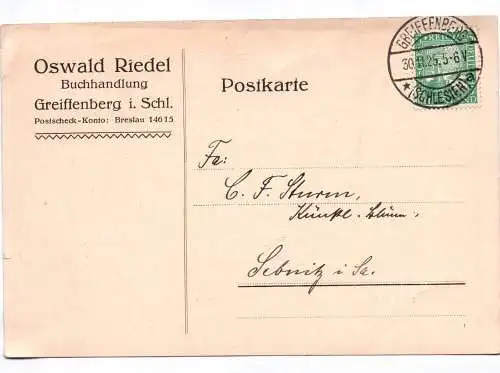 Oswald Riedel
Buchhandlung
Greiffenberg i. Schl.
Postscheck-Konto: Breslau 14615
Postkarte
GREIFFENBERG
30.11.25.5-6V
* (SCHLESIEN) a
Fa:
C. F. Sturm,
Künstl. Blum.
Sebnitz i. Sa.